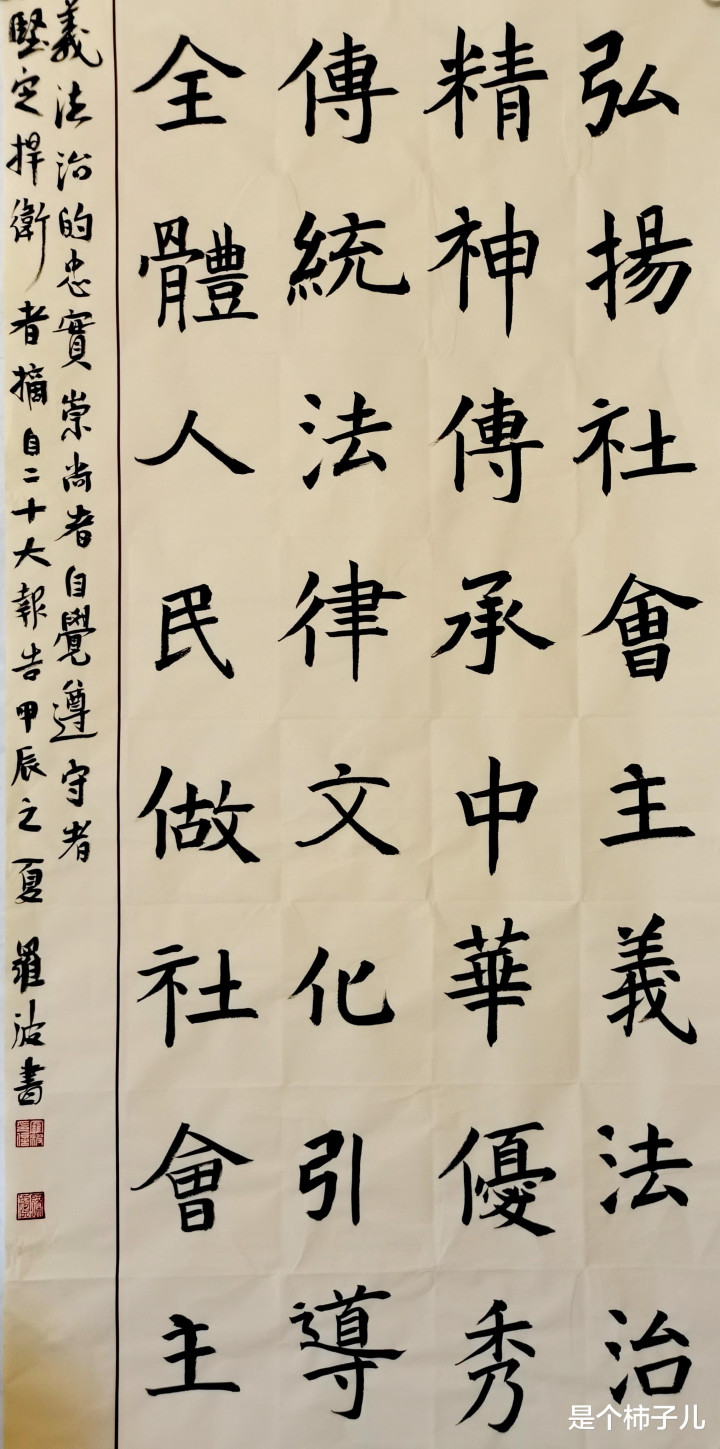 弘揚社會主義法治
精神傳承中華優秀
傳統法律文化引導
全體人民做社會主
義法治的忠實崇尚者自覺遵守者
堅定捍衛者摘自二十大報告甲辰之夏羅沾書
是个柿子儿